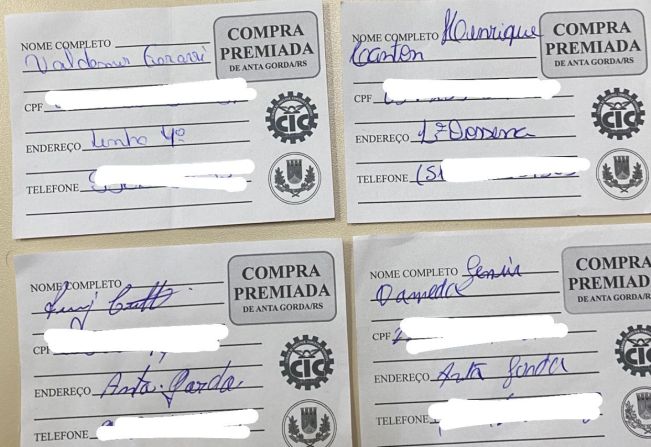 NOME COMPLETO
Valdemir
COMPRA
PREMIADA
DE ANTA GORDA/RS
CPF
CIC
ENDEREÇO Linha 4º
TELEFONE
NOME COMPLETO Henrique
COMPRA
PREMIADA
DE ANTA GORDA/RS
CPF
CIC
ENDEREÇO
TELEFONE (51
NOME COMPLETO
COMPRA
PREMIADA
DE ANTA GORDA/RS
CPF
CIC
ENDEREÇO Anta Gorda
TELEFONE
NOME COMPLETO
COMPRA
PREMIADA
DE ANTA GORDA/RS
CPF
CIC
ENDEREÇO Anta Gorda
TELEFONE